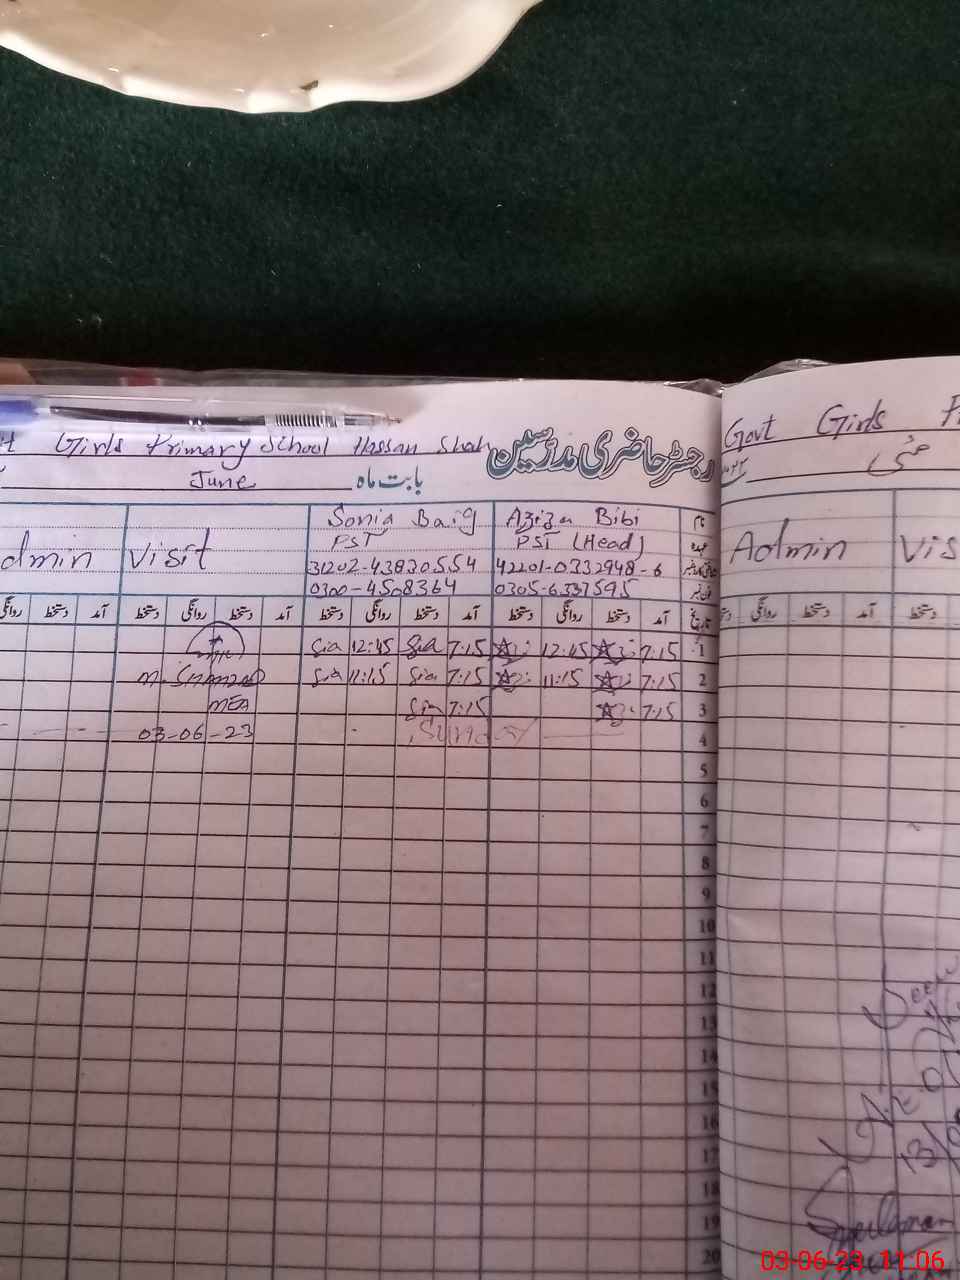 Girls Primary School Hassan Shah
رجسٹر حاضری مدرسین
June بابت ماہ
Admin Visit Sonia Baig Aziza Bibi نام
PST PST (Head) عہدہ
31202-4383055-4 42201-0332948-6
0300-4508364 0305-6337595
روانگی دستخط آمد دستخط روانگی دستخط آمد دستخط روانگی دستخط آمد دستخط روانگی دستخط آمد تاریخ
Sia 12:45 Sia 7:15 12:45 7:15 1
M. Shahzad Sia 11:15 Sia 7:15 11:15 7:15 2
MEA Sia 7:15 7:15 3
03-06-23 Sunday 4
5
6
7
8
9
10
11
12
13
14
15
16
17
18
19
20
Govt Girls
مئی
Admin Vis
روانگی دستخط آمد دستخط
03-06-23 11:06